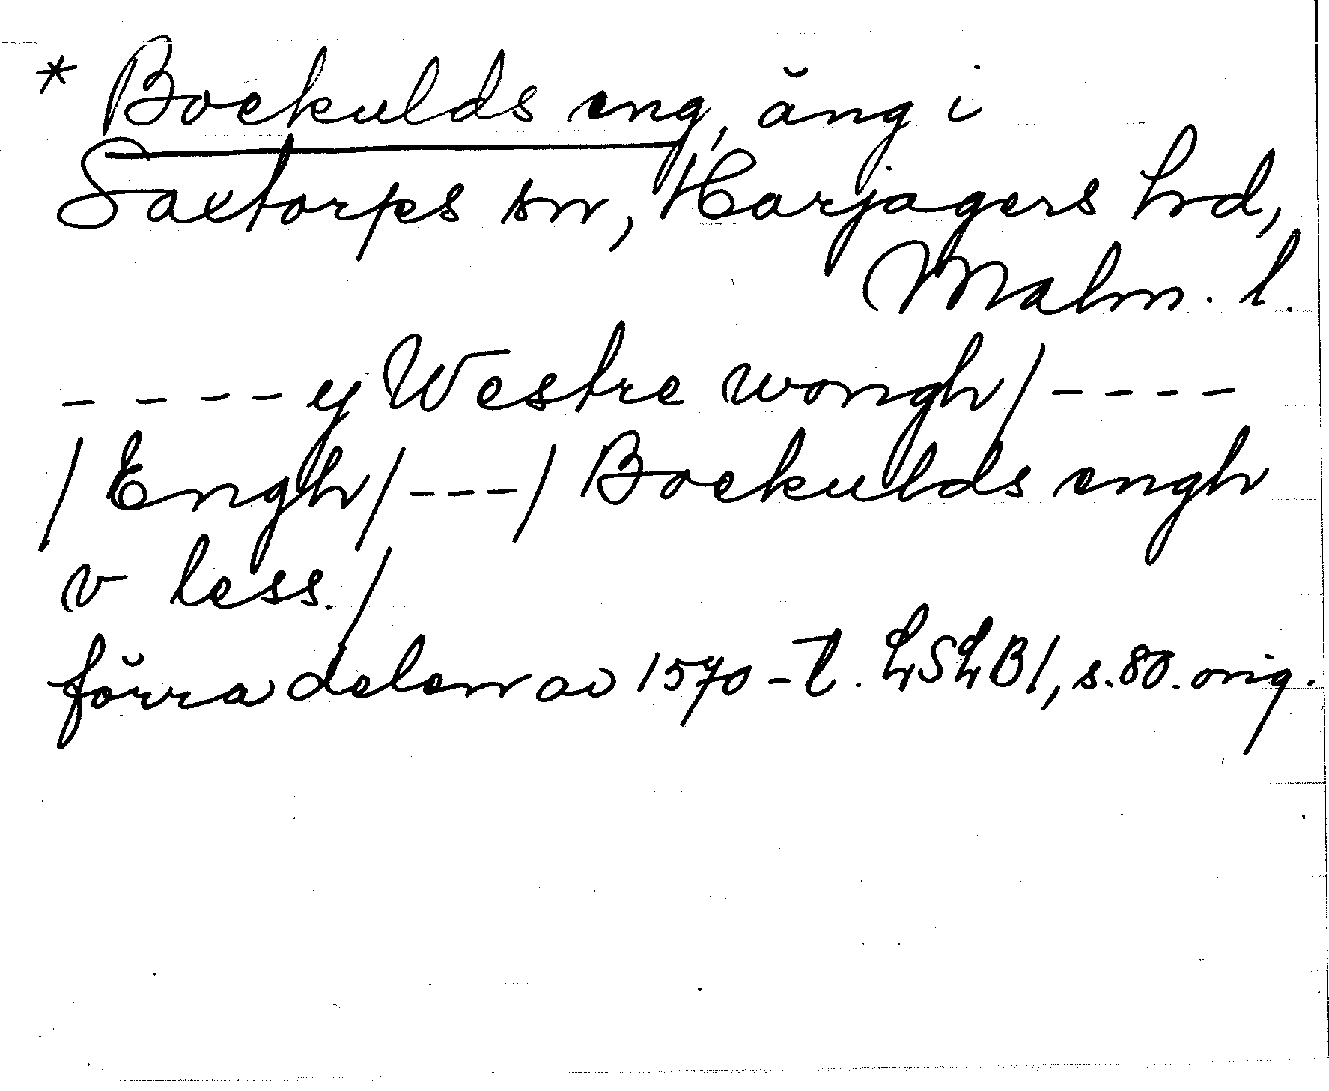 * Bockulds eng, äng i
Saxtorps sn, Harjagers hd,
Malm. l.
- - - - y Westre wongh/- - - -
/Engh/- - -/ Bockulds engh
v less./
förra delen av 1570-t. LSLB1, s.80. orig.